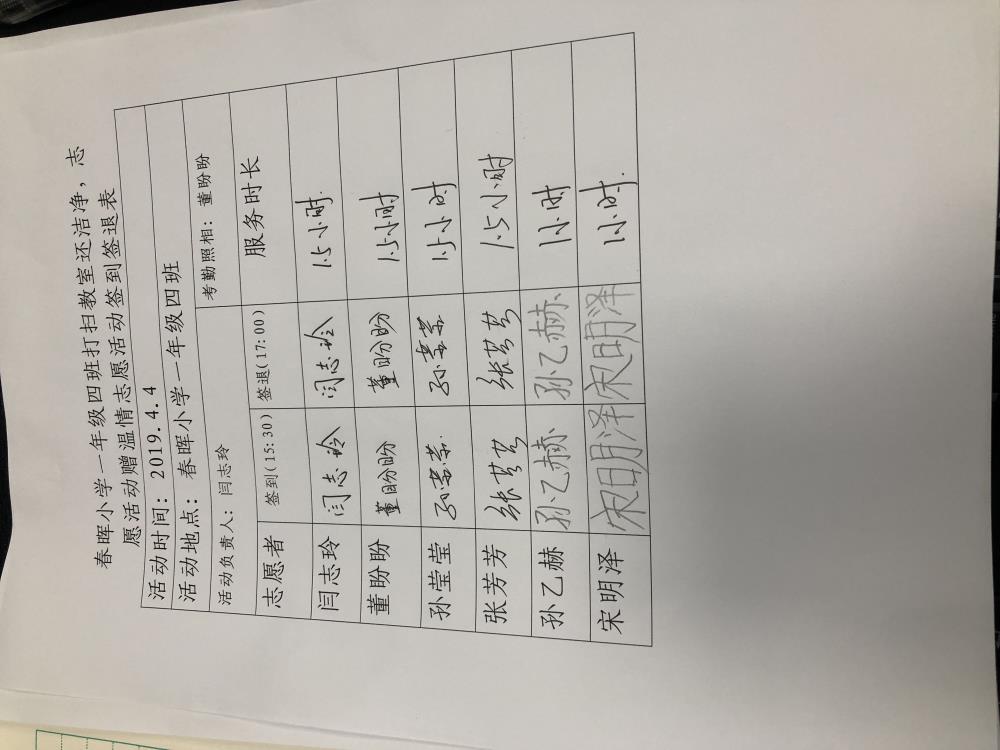 春晖小学一年级四班打扫教室还洁净，志
愿活动赠温情志愿活动签到签退表
活动时间：2019.4.4
活动地点：春晖小学一年级四班
活动负责人：闫志玲 考勤照相：董盼盼
志愿者 签到(15:30) 签退(17:00) 服务时长
闫志玲 闫志玲 闫志玲 1.5小时.
董盼盼 董盼盼 董盼盼 1.5小时
孙莹莹 孙莹莹 孙莹莹 1.5小时
张芳芳 张芳芳 张芳芳 1.5小时
孙乙赫 孙乙赫 孙乙赫 1小时
宋明泽 宋明泽 宋明泽 1小时.